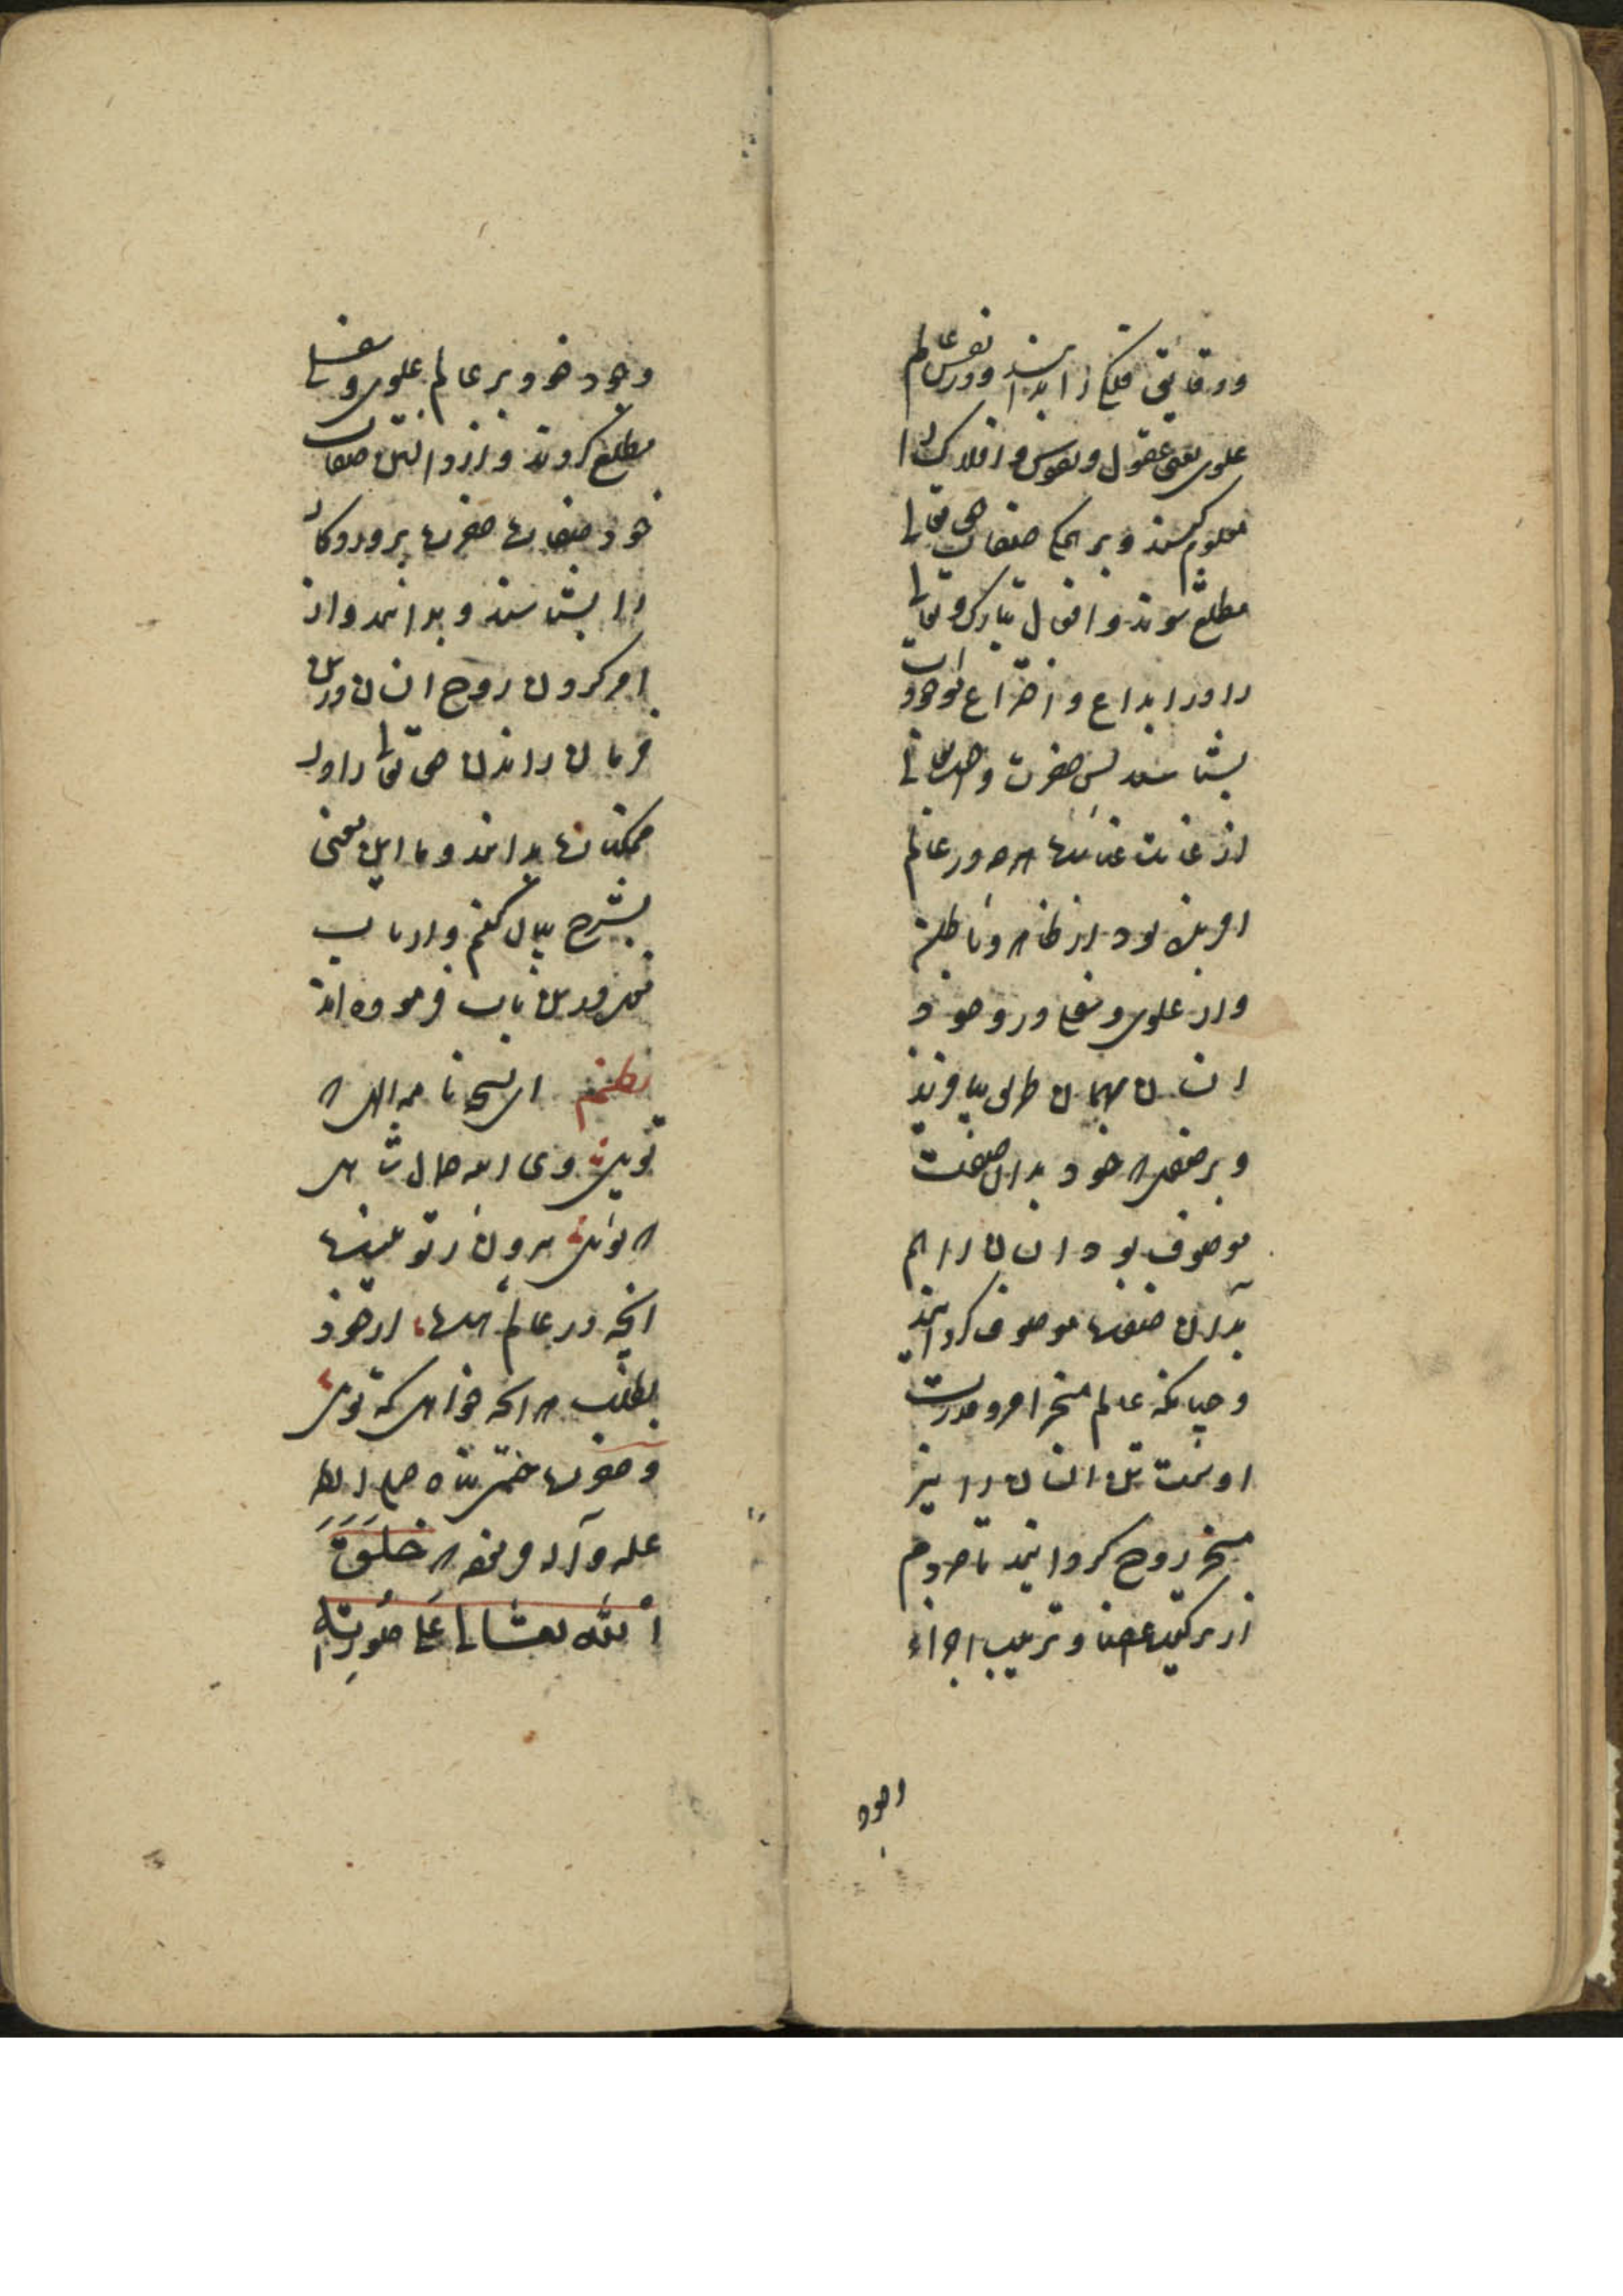 ودقایق فلکی را بدانند و در نفس عالم
علوی یعنی عقول و نفوس و افلاک را
معلوم کنند و بر همکی صفات حق تعالی
مطلع شوند و افعال تبارک و تعالی
را در ابداع و اختراع موجودات
بشناسند پس حضرت واهب تعالی
از غایت عنایت هرچه در عالم
افرینش بود از ظاهر و باطن
و از علوی و سفلی در وجود
انسان همان طریق بیافرید
و بر صفتی که خود بدان صفت
موصوف بود انسان را هم
بدان صفت موصوف کردانید
و چنانکه عالم مسخر امر و قدرت
اوست تن انسان را نیز
مسخر روح کردانید تا مردم
از ترکیب اعضا و ترتیب اجزاء
وجود
وجود خود بر عالم علوی و سفلی
مطلع کردند و از دانستن صفات
خود صفات حضرت پروردکار
را بشناسند و بدانند و از
امر کردن روح انسان در تن
فرمان راندن حق تعالی را در
ممکنات بدانند و ما این معنی
بشرح بیان کفتم و ارباب
خرد درین باب فرموده اند
نظم ای نسخه نامه الهی که
تویی وی اینه جمال شاهی
که تویی بیرون ز تو نیست
انچه در عالم هست از خود
بطلب هر انچه خواهی که تویی
و حضرت ختمی پناه صلی الله
علیه و آله فرمود که خَلَقَ
اللّٰه تعالی عَلی صُورتِه